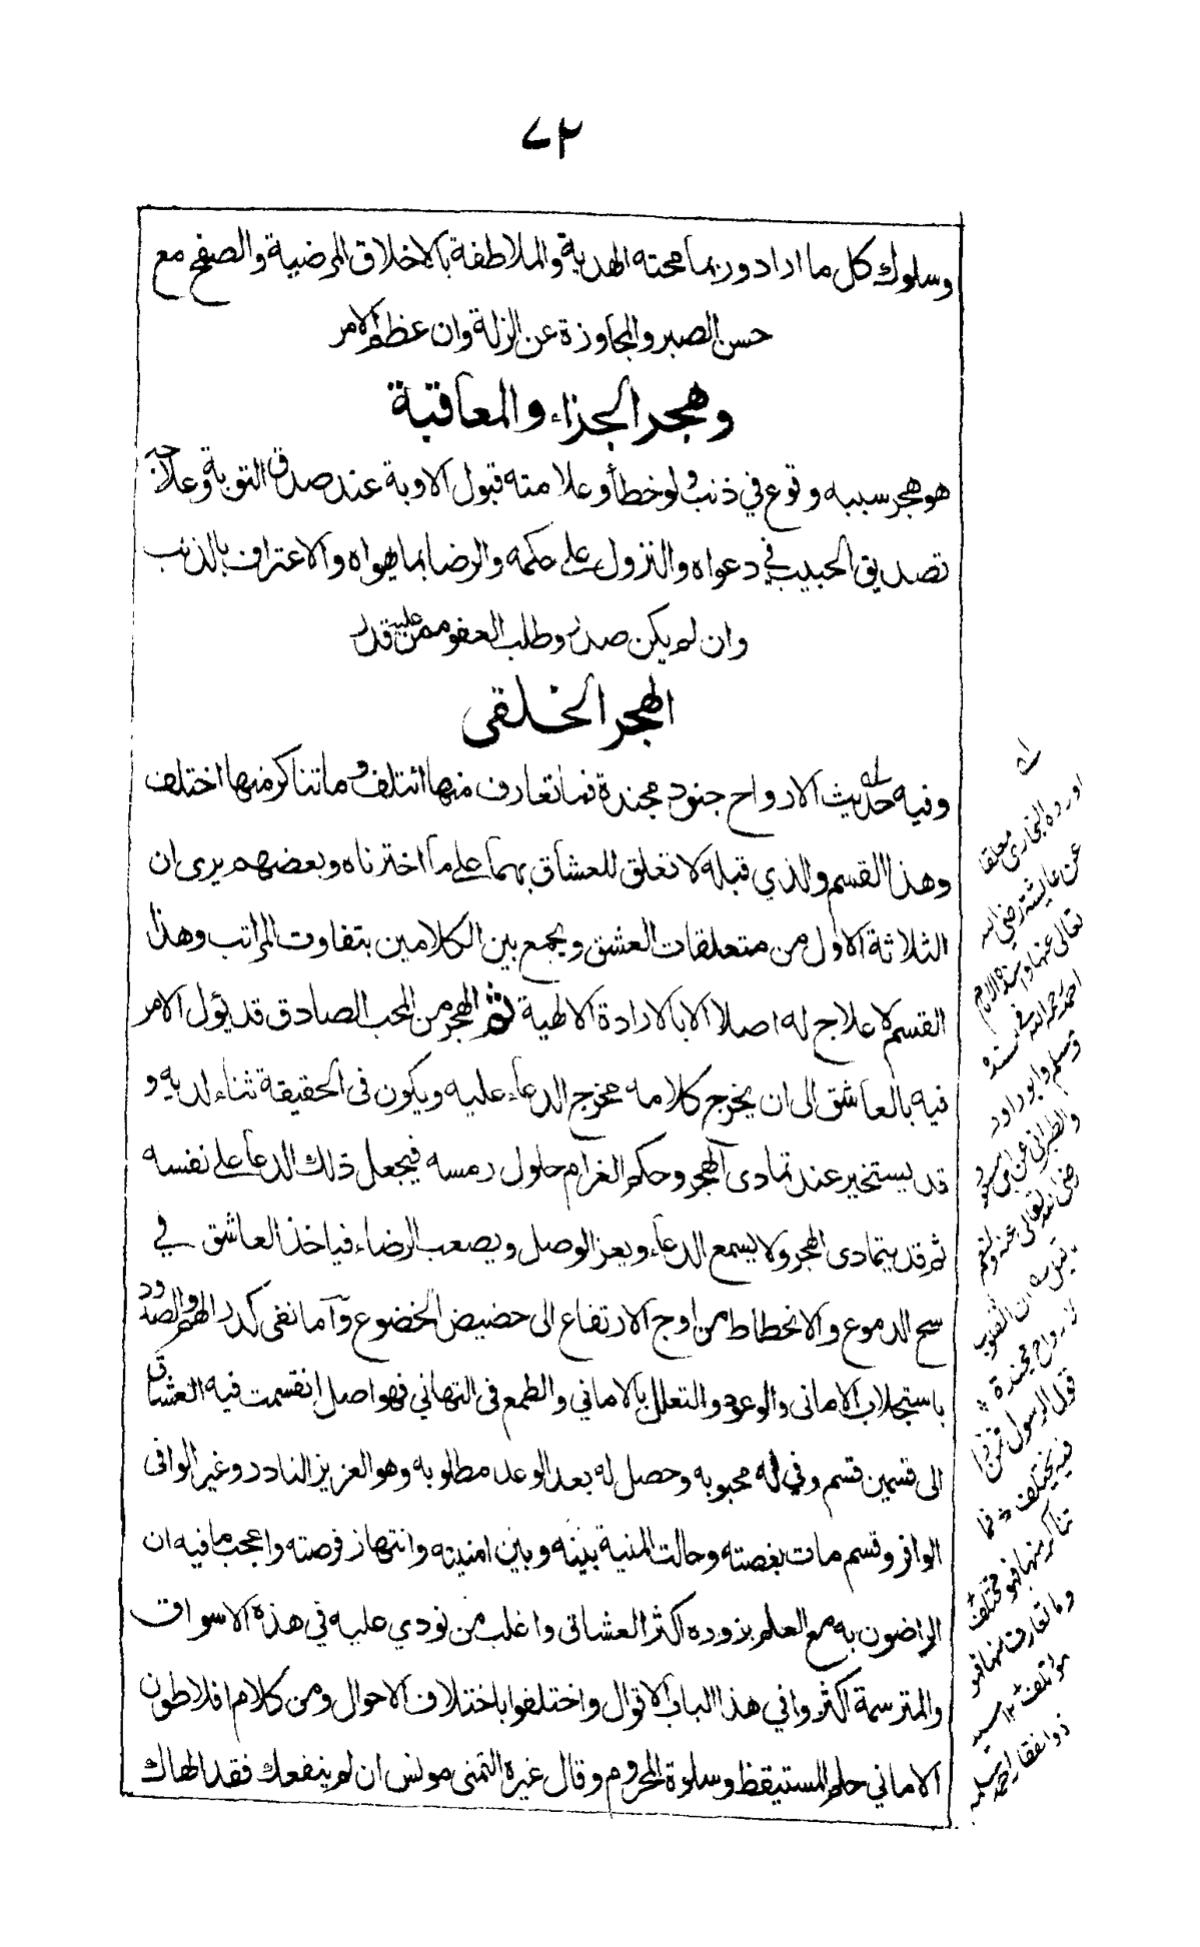 ٧٢
وسلوك كل ما اراد وربما محته الهدية والملاطفة بالاخلاق المرضية والصفح مع
حسن الصبر والمجاوزة عن الزلة وان عظم الامر
وهجر الجزاء والمعاقبة
هو هجر سببه وقوع في ذنب ولو خطأ وعلامته قبول الاوبة عند صدق التوبة وعلاجه
تصديق الحبيب في دعواه والنزول على حكمه والرضا بما يهواه والاعتراف بالذنب
وان لم يكن صدر وطلب العفو ممن عليه قدر
الهجر الخلقي
وفيه حديث الارواح جنود مجندة فما تعارف منها ائتلف وما تناكر منها اختلف
وهذا القسم والذي قبله لا تعلق للعشاق بهما على ما اخترناه وبعضهم يرى ان
الثلاثة الاول من متعلقات العشق ويجمع بين الكلامين بتفاوت المراتب وهذا
القسم لا علاج له اصلا الا بالارادة الالهية ثم الهجر من المحب الصادق قد يؤل الامر
فيه بالعاشق الى ان يخرج كلامه مخرج الدعاء عليه ويكون فى الحقيقة ثناء لديه و
قد يستخير عند تمادى الهجر وحكم الغرام حلول رمسه فيجعل ذلك الدعا على نفسه
ثم قد يتمادى الهجر ولا يسمع الدعاء ويعز الوصل ويصعب الرضاء فياخذ العاشق في
سح الدموع والانحطاط من اوج الارتفاع الى حضيض الخضوع وآما نفى كدر الهم والصدود
باستجلاب الامانى والوعود والتعلل بالاماني والطمع فى التهاني فهو اصل انقسمت فيه العشاق
الى قسمين قسم وفي له محبوبه وحصل له بعد الوعد مطلوبه وهو العزيز النادر وغير الوافى
الوافر وقسم مات بغصته وحالت المنية بينه وبين امنيته وانتهاز فرصته واعجب ما فيه ان
الراضون به مع العلم بزوره اكثر العشاق واغلب من نودي عليه في هذه الاسواق
والمترسمة اكثروا في هذا الباب الاقوال واختلفوا باختلاف الاحوال ومن كلام افلاطون
الاماني حلم المستيقظ وسلوة المحروم وقال غيره التمنى مونس ان لم ينفعك فقد الهاك
اورده البخارى معلقا
عن عايشة رضي الله
تعالى عنها وسنده الامام
احمد رحمه الله في مسنده
ومسلم وابو داود
والطبراني عن ابن مسعود
رضى الله تعالى عنه
قول الرسول فمن ذا
فيه يختلف فما
تناكر منها فهو مختلف
وما تعارف منها فهو
مؤتلف ١٢ سيد
ذوالفقار احمد سلمه